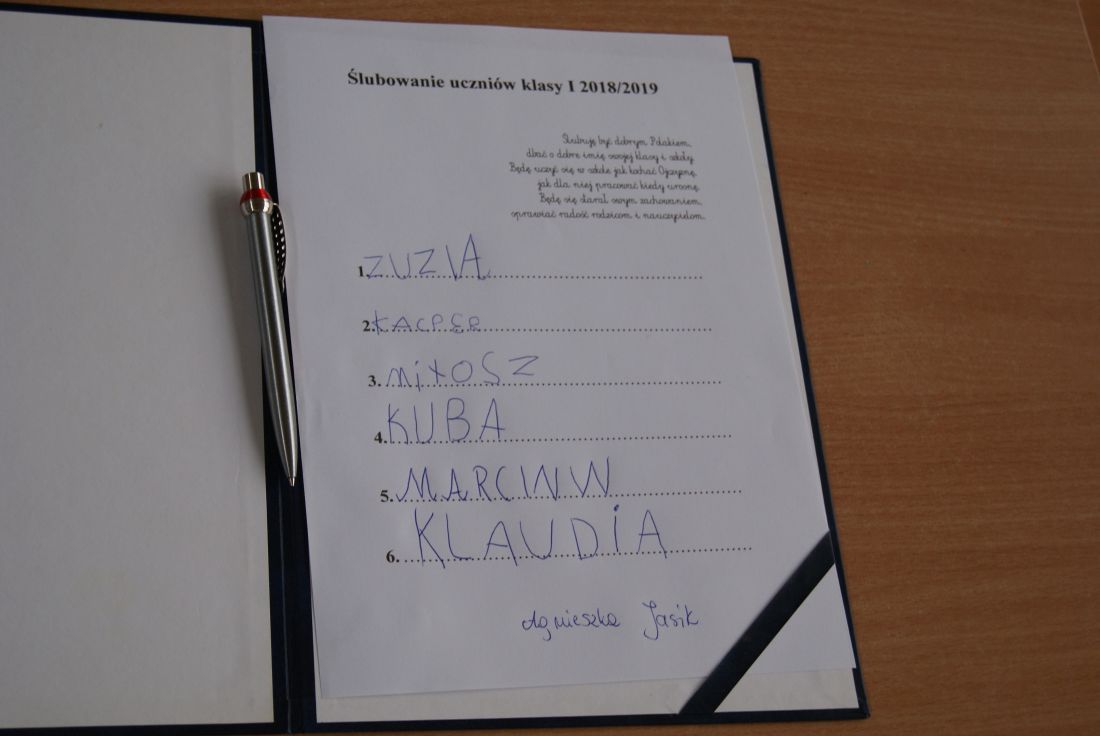 Ślubowanie uczniów klasy I 2018/2019
Ślubuję być dobrym Polakiem,
dbać o dobre imię swojej klasy i szkoły.
Będę uczyć się w szkole jak kochać Ojczyznę,
jak dla niej pracować kiedy urosnę.
Będę się starał swym zachowaniem,
sprawiać radość rodzicom i nauczycielom.
1. ZUZIA
2. KACPER
3. MiŁOSZ
4. KUBA
5. MARCIN W
6. KLAUDiA
Agnieszka Jasik